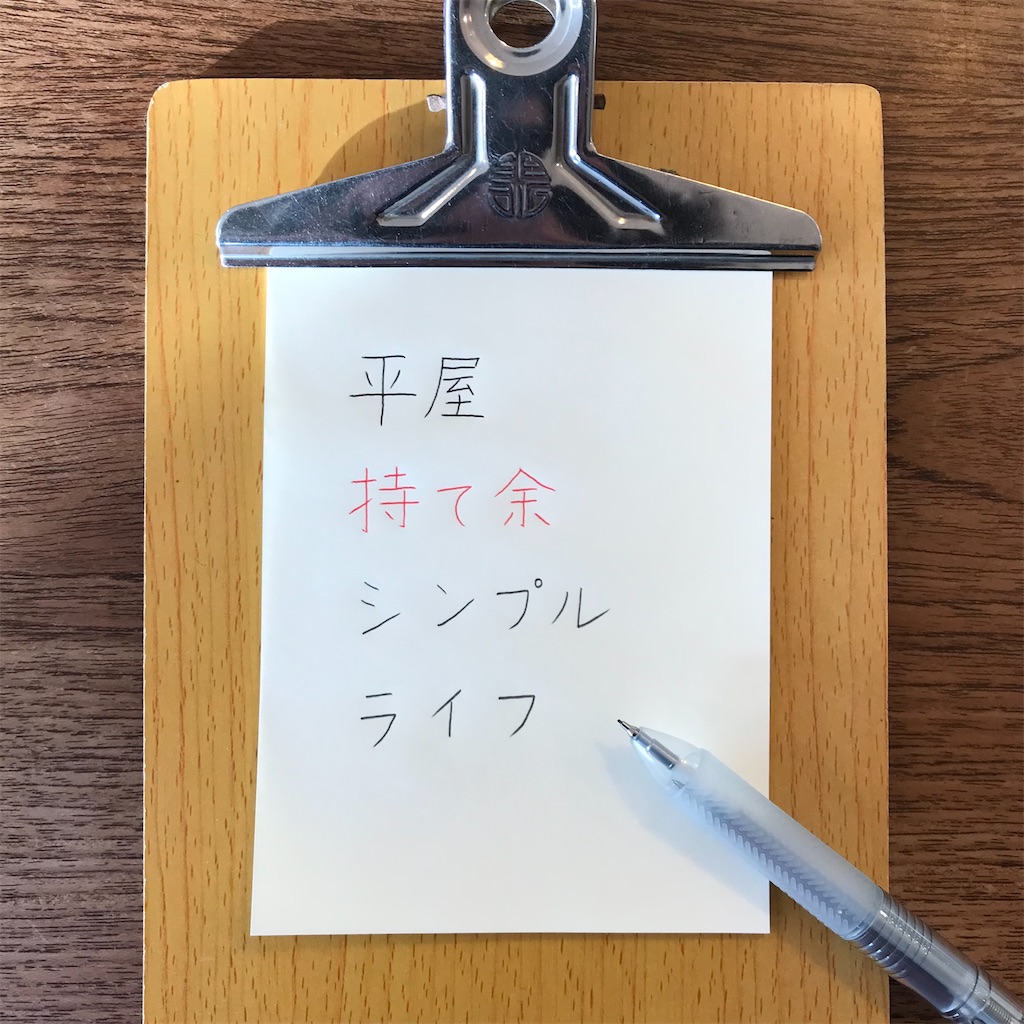 平屋
持て余
シンプル
ライフ